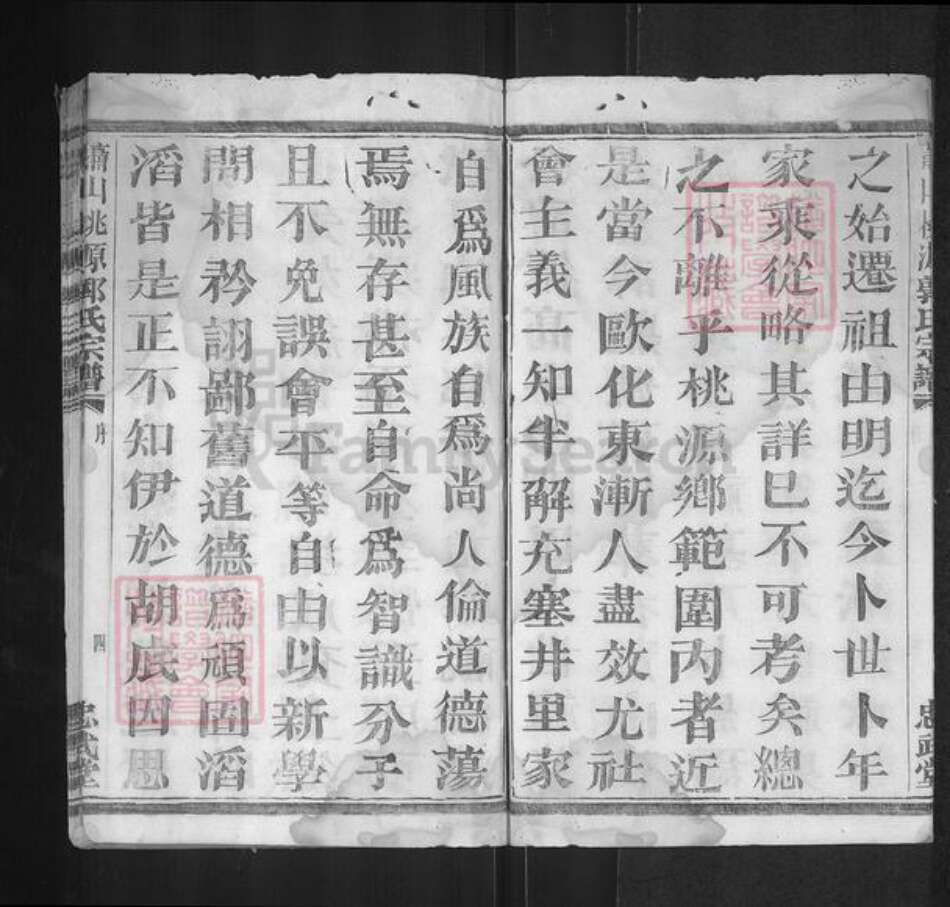 之始遷祖由明迄今卜世卜年
家乘從略其詳已不可考矣總
之不離乎桃源鄉範圍內者近
是當今歐化東漸人盡效尤社
會主義一知半解充塞井里家
自爲風族自爲尚人倫道德蕩
焉無存甚至自命爲智識分子
且不免誤會平等自由以新學
閒相矜詡鄙舊道德爲頑固滔
滔皆是正不知伊於胡底因思
蕭山桃源郭氏宗譜
序
四
忠武堂
FamilySearch